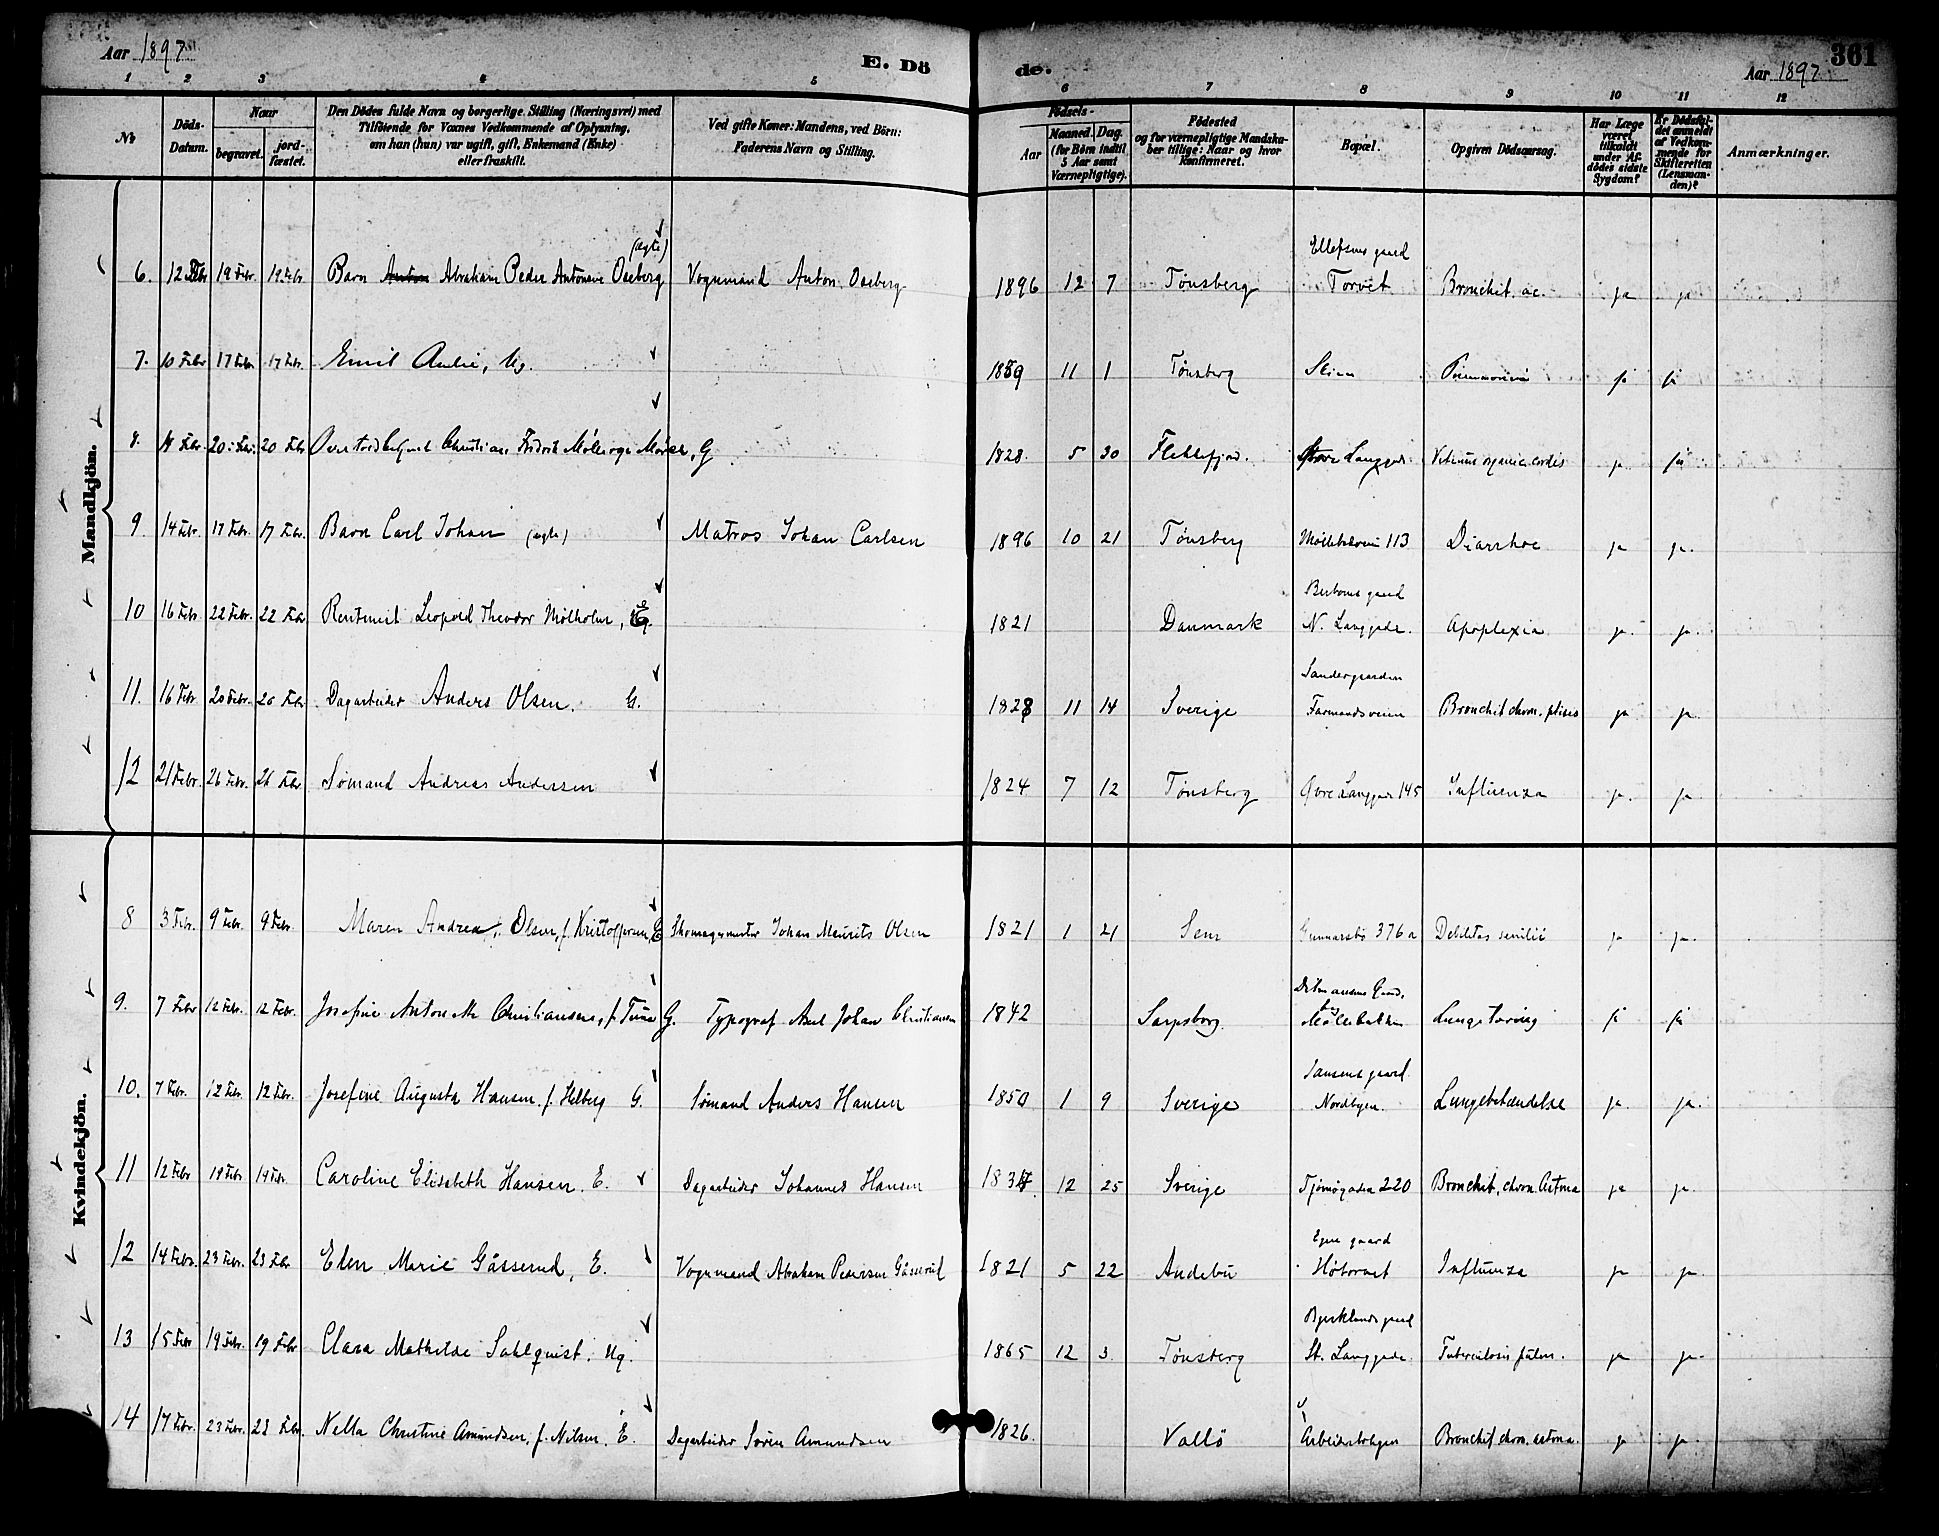 Aar 1897
E. Dö
de.
Aar 1897
361
1 2 3 4 5 6 7 8 9 10 11 12
No
Döds-Datum.
Naar
begravet.
jordfæstet.
Den Dödes fulde Navn og borgerlige Stilling (Næringsvei) med
Tilföiende for Voxnes Vedkommende af Oplysning,
om han (hun) var ugift, gift, Enkemand (Enke)
eller fraskilt.
Ved gifte Koner: Mandens, ved Börn:
Faderens Navn og Stilling.
Födsels-
Aar
Maaned. Dag.
(for Börn indtil
5 Aar samt
Værnepligtige).
Födested
og for værnepligtige Mandska-
ber tillige: Naar og hvor
Konfirmeret.
Bopæl.
Opgiven Dödsaarsag.
Har Læge
været
tilkaldt
under Af-
dödes sidste
Sygdom?
Er Dödsfal-
det anmeldt
af Vedkom-
mende for
Skifteretten
(Lensman-
den)?
Anmærkninger.
Mandkjön.
6. 12 Febr 19 Febr. 19 Febr Barn Anton Abraham Peder Antonsen Oseberg (ægte) Vognmand Anton Oseberg 1896 12 7 Tønsberg Ellefsens gaard Torvet Bronchit. ac. ja ja
7. 10 Febr 17 Febr 17 Febr. Emil Aulie, Ug. 1859 11 1 Tønsberg Skien Pneumonia ja ja
8. Febr. 20 Febr. 20 Febr Christian Fridrik G 1828. 5 30 Flekkefjord. Øvre Langgade Vitium organic. cordis ja ja
9. 14 Febr. 17 Febr. 17 Febr. Barn Carl Johan (ægte) Matros Johan Carlsen 1896 10 21 Tønsberg 113 Diarrhoe ja ja.
10 16 Febr. 22 Febr. 22 Febr Rentenist Leopold Theodor Mølholm, 1821 Danmark gaard N. Langgade. Apoplexia ja. ja.
11. 16 Febr 20 Febr. 20 Febr Dagarbeider Anders Olsen. G. 1828 11 14 Sverige Sandergaarden Farmandsveien Bronchit chron. ja ja
12 21 Febr. 26 Febr. 26 Febr Sømand Andreas Andersen 1824 7 12 Tønsberg Øvre Langgade 145 Influenza ja. ja
Kvindekjön.
8 3 Febr. 9 Febr. 9 Febr. Maren Andrea Olsen, f. Kristoffersen, E Skomagermester Johan Maurits Olsen 1821 1 21 Sem Gunnarsbø 376 a Debilitas senilis ja ja.
9. 7 Febr 12 Febr. 12 Febr. Josefine Antonette Christiansen, f. G. Typograf Axel Johan Christiansen 1842 Sarpsborg. Ditmansens Gaard, Møllebakken Lungetæring ja ja
10. 7 Febr. 12 Febr. 12 Febr. Josefine Augusta Hansen f. Helberg G. Sømand Anders Hansen 1850 1 9 Sverige Jansens gaard. Nordbyen. Lungebetændelse ja. ja.
11 12 Febr 19 Febr. 19 Febr. Caroline Elisabeth Hansen. E. Dagarbeider Johannes Hansen 1834 12 25 Sverige Tjömögaden 220 Bronchit. chron. Astma ja ja.
12 14 Febr. 23 Febr. 23 Febr Elen Marie Gåsserud, E. Vognmand Abraham Pedersen Gåsserud 1821 5 22 Andebu Egen gaard Høtorvet Influenza ja ja.
13 15 Febr 19 Febr. 19 Febr Clara Mathilde Sahlqvist. Ug. 1865 12 3. Tønsberg Bjerklands gaard St. Langgade. Tuberculosis pulm. ja ja.
14 17 Febr. 23 Febr. 23 Febr. Nella Christine Amundsen, f. Nilsen. E. Dagarbeider Sören Amundsen 1826. Vallö Arbeiderboligen Bronchit chron. astma. ja ja.